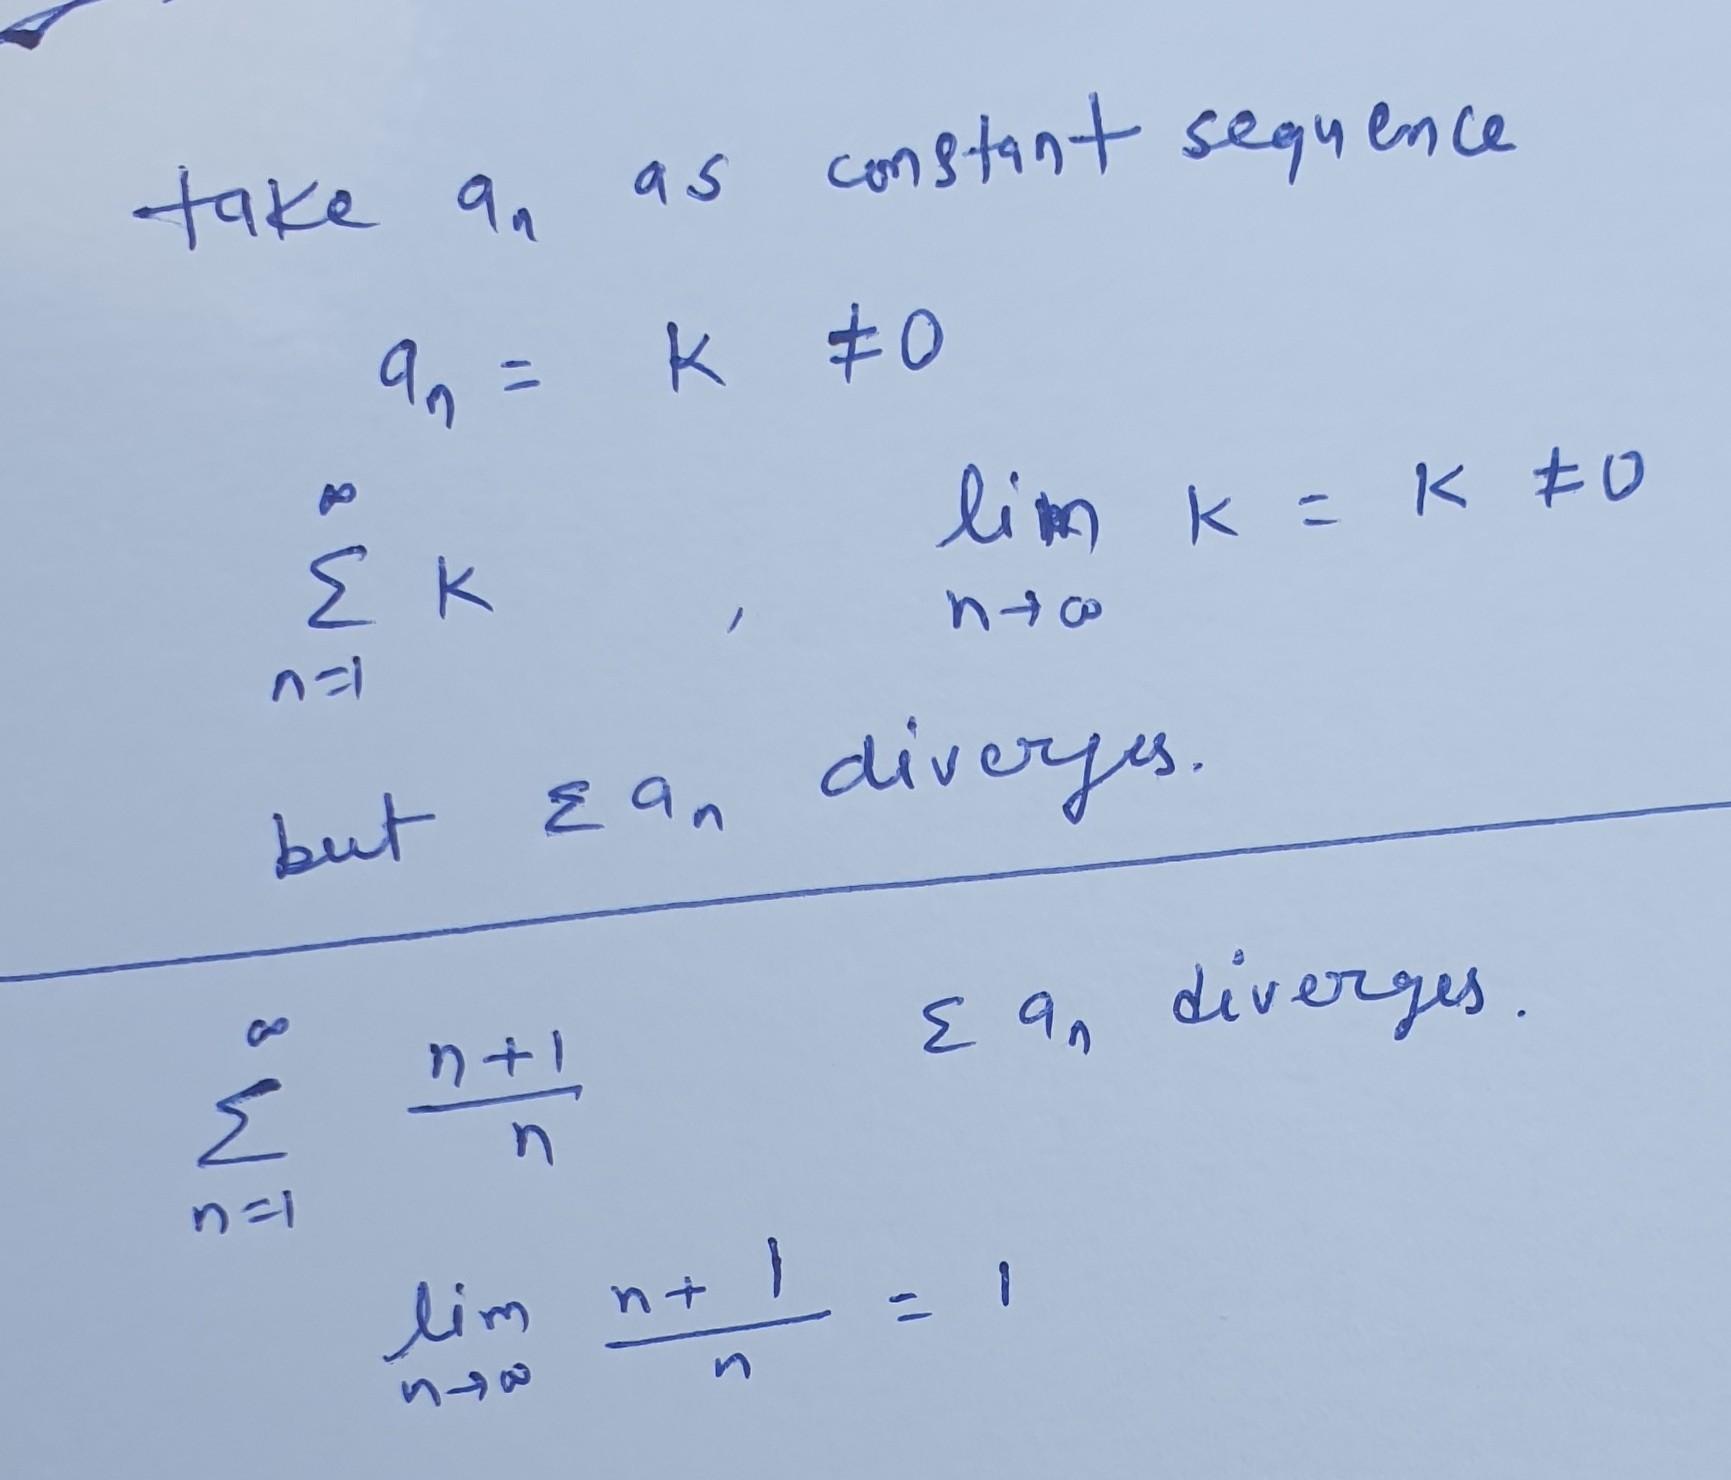 take aₙ as constant sequence
aₙ = K ≠0
∞
Σ K , lim K = K ≠0
n=1 n→∞
but Σ aₙ diverges.
∞ n+1 Σ aₙ diverges.
Σ ―
n=1 n
lim n+1 = 1
n→∞ n